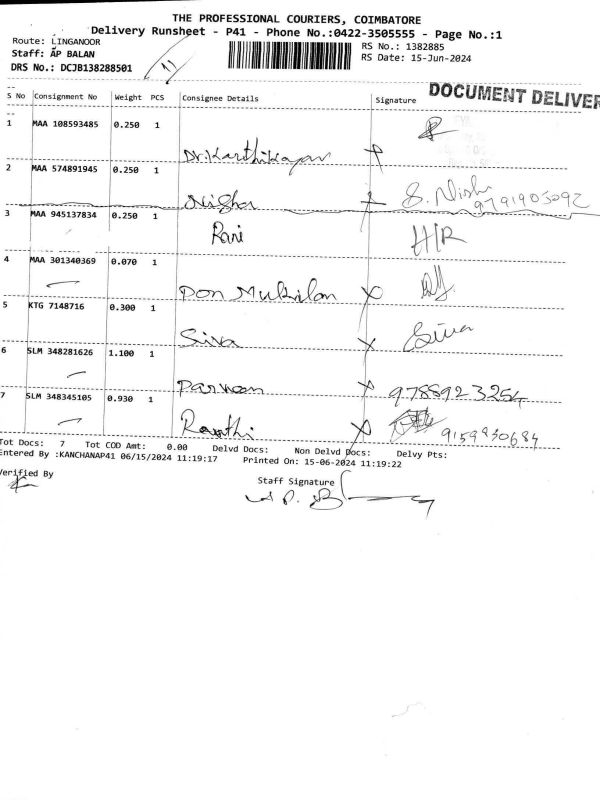 THE PROFESSIONAL COURIERS, COIMBATORE
Delivery Runsheet - P41 - Phone No.:0422-3505555 - Page No.:1
Route: LINGANOOR RS No.: 1382885
Staff: AP BALAN RS Date: 15-Jun-2024
DRS No.: DCJB138288501 11
DOCUMENT DELIVER
S No Consignment No Weight PCS Consignee Details Signature
1 MAA 108593485 0.250 1
Dr. Karthikayan
2 MAA 574891945 0.250 1
Nisha S. Nisha
9791903092
3 MAA 945137834 0.250 1
Rani H/R
4 MAA 301340369 0.070 1
Pon Mukilan
5 KTG 7148716 0.300 1
Siva Siva
6 SLM 348281626 1.100 1
Parveen 9788923254
7 SLM 348345105 0.930 1
9159830684
Tot Docs: 7 Tot COD Amt: 0.00 Delvd Docs: Non Delvd Docs: Delvy Pts:
Entered By :KANCHANAP41 06/15/2024 11:19:17 Printed On: 15-06-2024 11:19:22
Verified By
Staff Signature